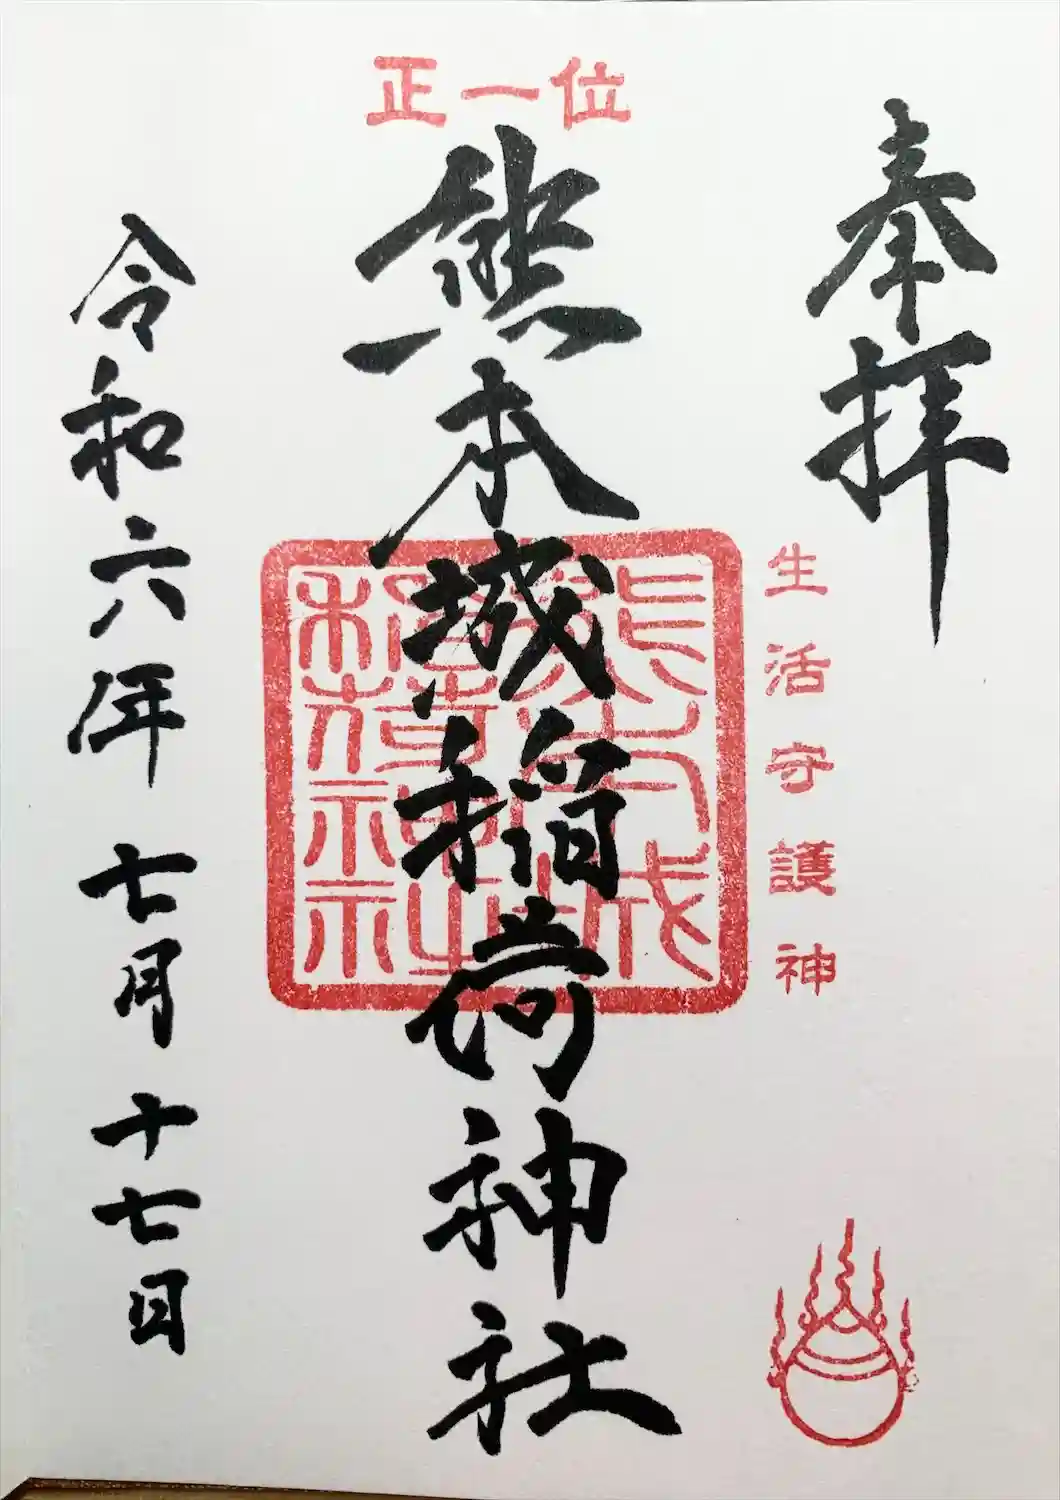 奉拝
生活守護神
正一位
熊本城稲荷神社
熊本城
稲荷神社
令和六年七月十七日